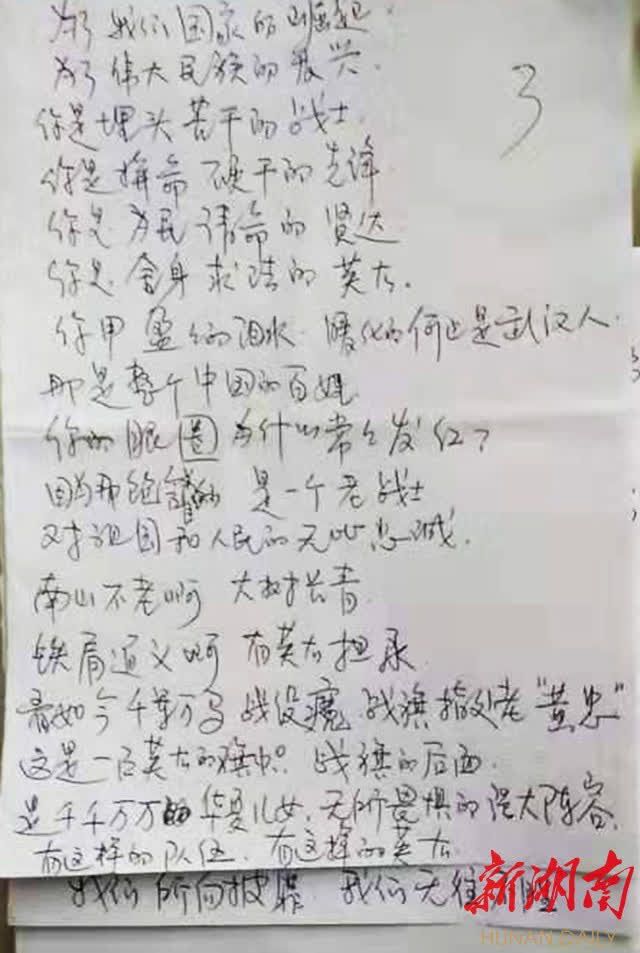 为了我们国家的崛起
为了伟大民族的复兴.
3
你是埋头苦干的战士.
你是拚命硬干的先锋
你是为民请命的贤达
你是舍身求法的英雄.
你用盈盈的泪水 暖化的何止是武汉人.
那是整个中国的百姓
你的眼圈为什么常常发红?
因为那饱含的 是一个老战士
对祖国和人民的无比忠诚.
南山不老啊 大树长青
铁肩道义啊 有英雄担承
看如今千军万马战役魔 战旗指处老“黄忠”
这是一面英雄的旗帜 战旗的后面.
是千千万万的华夏儿女, 无所畏惧的强大阵容.
有这样的队伍. 有这样的英雄
我们所向披靡 我们无往
新湖南
HUNAN DAILY